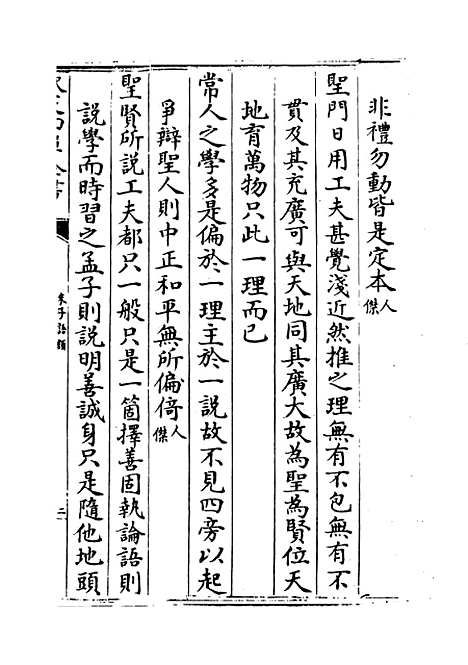 非禮勿動皆是定本人傑
聖門日用工夫甚覺淺近然推之理無有不包無有不
貫及其充廣可與天地同其廣大故為聖為賢位天
地育萬物只此一理而已
常人之學多是偏於一理主於一說故不見四旁以起
爭辯聖人則中正和平無所偏倚人傑
聖賢所說工夫都只一般只是一箇擇善固執論語則
說學而時習之孟子則說明善誠身只是隨他地頭
朱子語類
二